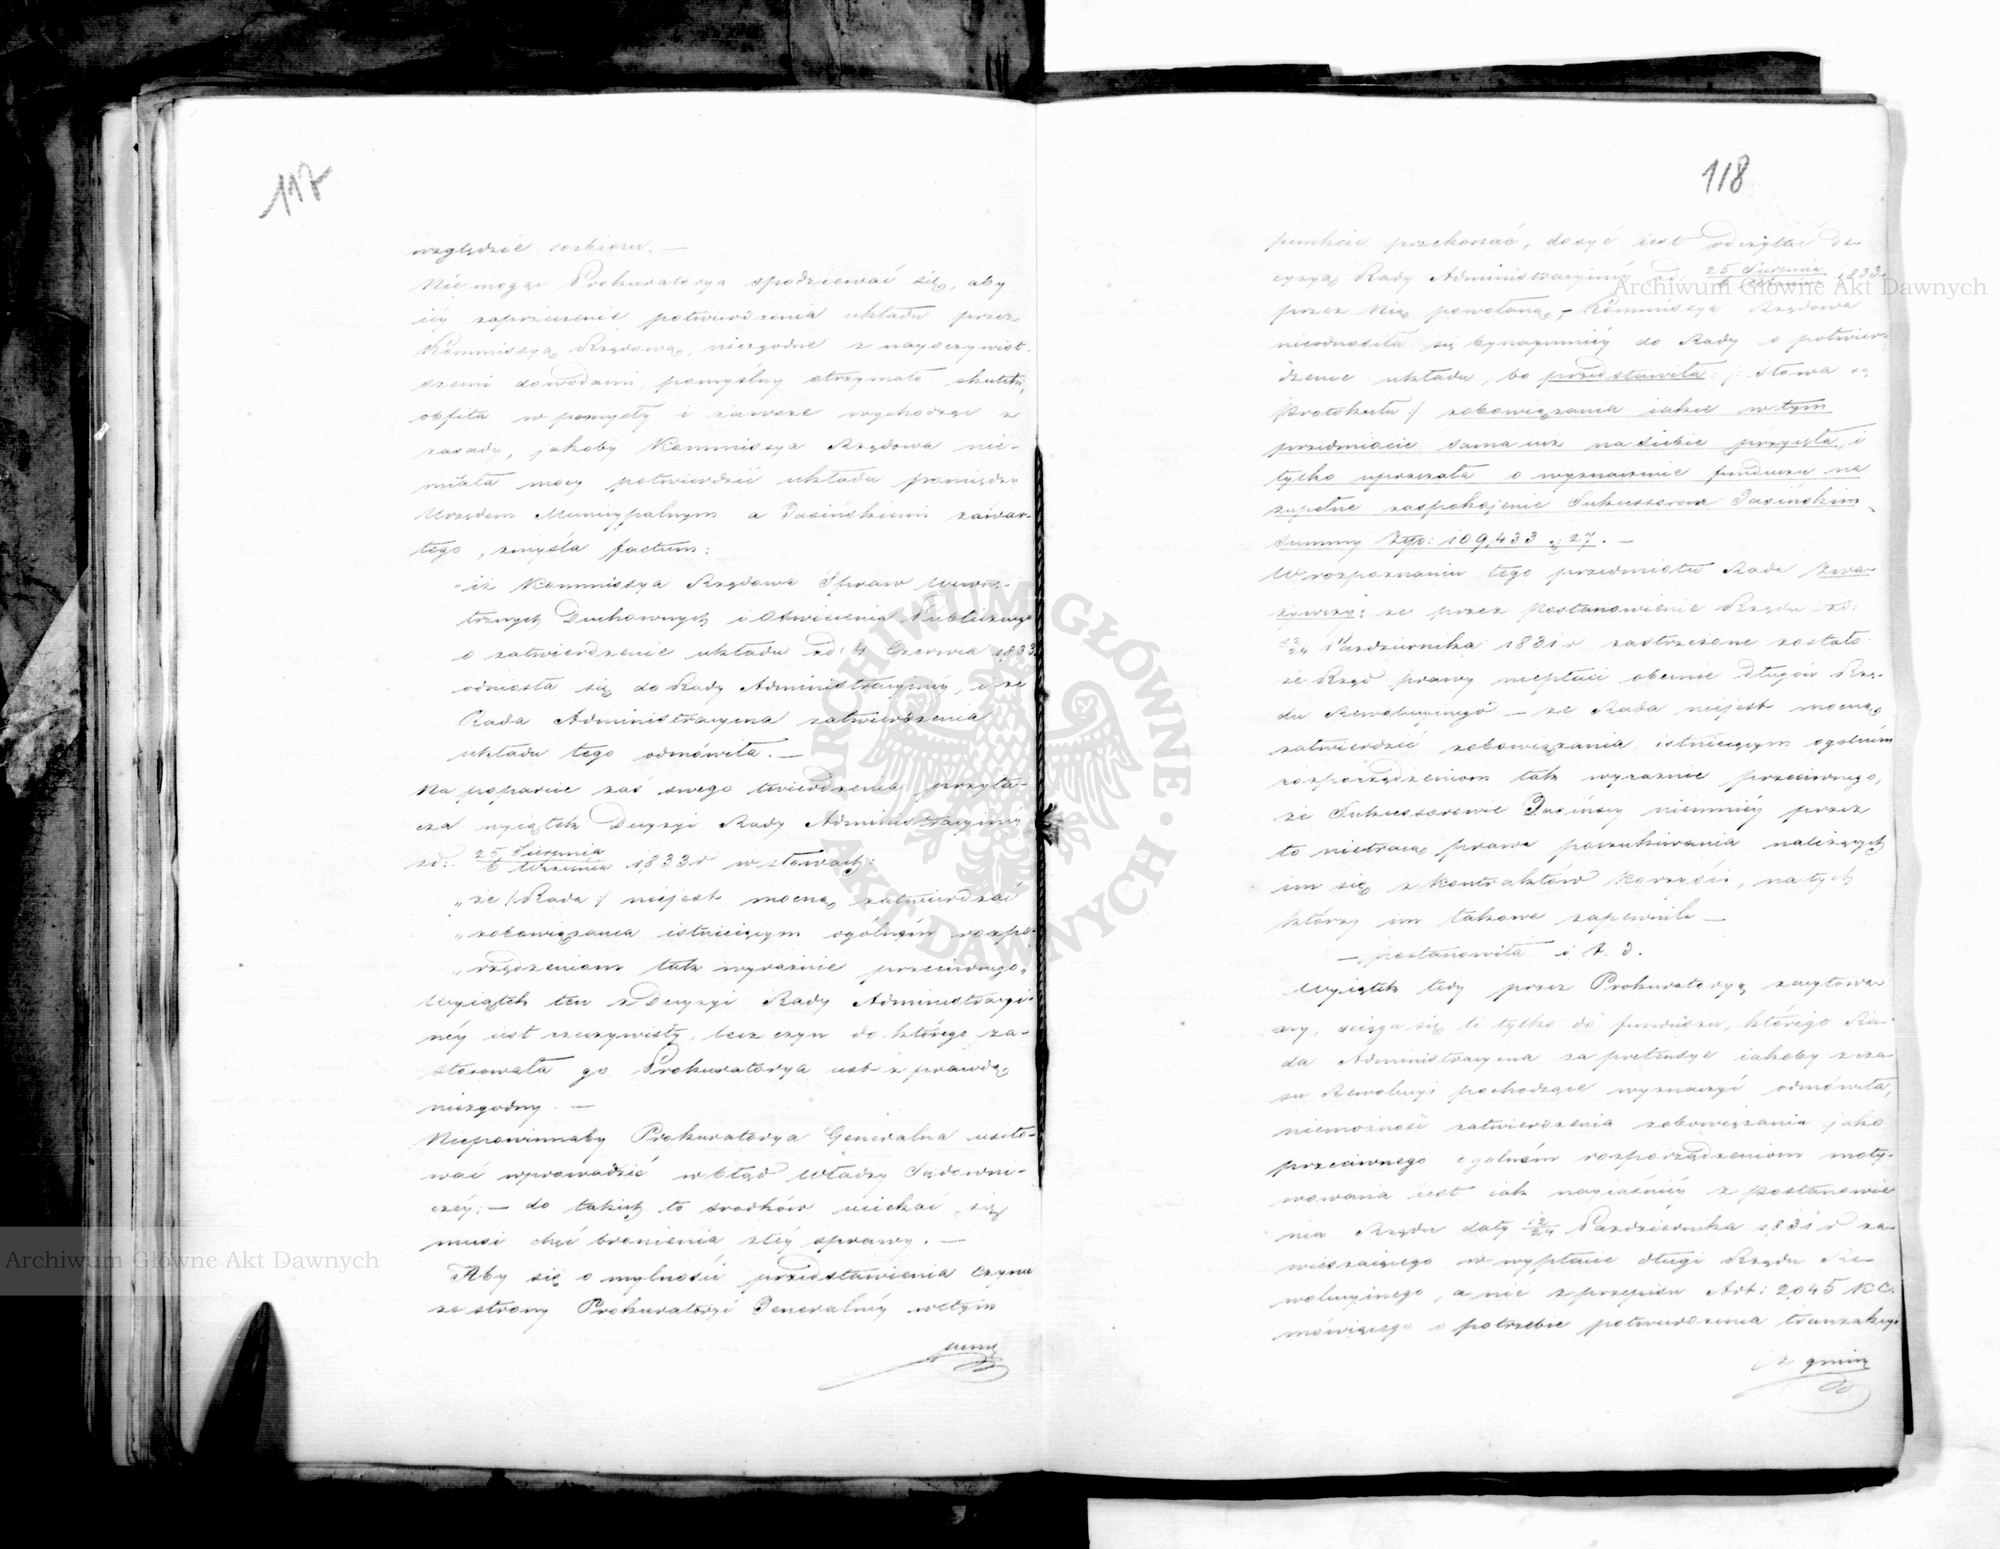 117
względzie rozbioru. —
Niemogąc Prokuratorya spodziewać się, aby
iéy zaprzeczenie potwierdzenia układu przez
Kommissyą Rządową, niezgodne z nayoczywist-
szemi dowodami, pomyślny otrzymało skutek,
obfita w pomysły i zawsze wychodząc z
zasady, jakoby Kommissya Rządowa nie-
miała mocy potwierdzić układu pomiędzy
Urzędem Municypalnym a Jasińskiemi zawar-
tego, zmyśla factum:
„iż Kommissya Rządowa Spraw Wewnę-
trznych Duchownych i Oświecenia Publicznego
o zatwierdzenie układu zd: 4 Czerwca 1833
odniosła się do Rady Administracyinéy, i że
Rada Administracyina zatwierdzenia
układu tego odmówiła. —
Na poparcie zaś swego twierdzenia przyta-
cza wyiątek Decyzyi Rady Administracyinéy
zd: 25 Sierpnia / 6 Września 1833 r w słowach:
„że /: Rada :/ niejest mocną zatwierdzać
„zobowiązania istnieiącym ogólnym rozpo-
„rządzeniom tak wyraźnie przeciwnego„
Wyiątek ten z Decyzyi Rady Administracyi-
néy iest rzeczywisty, lecz czyn do którego za-
stosowała go Prokuratorya iest z prawdą
niezgodny. —
Niepowinnaby Prokuratorya Generalna usiło-
wać wprowadzić w błąd Władzy Sądowni-
czéy; — do takich to srodków uciekać się
musi chęć bronienia złéy sprawy. —
Aby się o mylności przedstawienia czynu
ze strony Prokuratoryi Generalnéy wtym
118
punkcie przekonać, dosyć iest odczytać de-
cyzyą Rady Administracyinéy zd: 25 Sierpnia / 6 Września 1833
przez Nią powołaną, — Kommissya Rządowa
nieodnosiła się bynaymniéy do Rady o potwier-
dzenie układu, bo przedstawiła /: słowa są
Protokułu :/ zobowiązania iakie wtym
przedmiocie sama iuż na siebie przyięła, i
tylko upraszała o wyznaczenie funduszu na
zupełne zaspokojenie Sukcessorom Jasińskim
summy Złp: 109,433 „: 27. —
W rozpoznaniu tego przedmiotu Rada zwa-
żywszy: że przez Postanowienie Rządu zd:
12/24 Października 1831 r zastrzeżone zostało
że Rząd prawy niepłaci obecnie długów Rzą-
du Rewolucyinego — że Rada niejest mocną
zatwierdzić zobowiązania istnieiącym ogolnym
rozporządzeniom tak wyraźnie przeciwnego,
że Sukcessorowie Jasińscy niemniéy przez
to nietracą prawa poszukiwania należących
im się z kontraktów korzyści, na tych
którzy im takowe zapewnili —
— postanowiła i t. d.
Wyiątek tedy przez Prokuratoryą zacytowa-
ny, ściąga się li tylko do funduszu, którego Ra-
da Administracyina za pretensye iakoby z cza-
su Rewolucyi pochodzące wyznaczyć odmówiła,
niemożność zatwierdzenia zobowiązania jako
przeciwnego ogólnym rozporządzeniom moty-
wowana iest iak nayiaśniéy z postanowie
nia Rządu daty 12/24 Października 1831 r za-
wieszaiącego w wypłacie długi Rządu Re-
wolucyinego, a nie z przepisu Art: 2045 K C.
mówiącego o potrzebie potwierdzenia tranzakcyi
z gmin